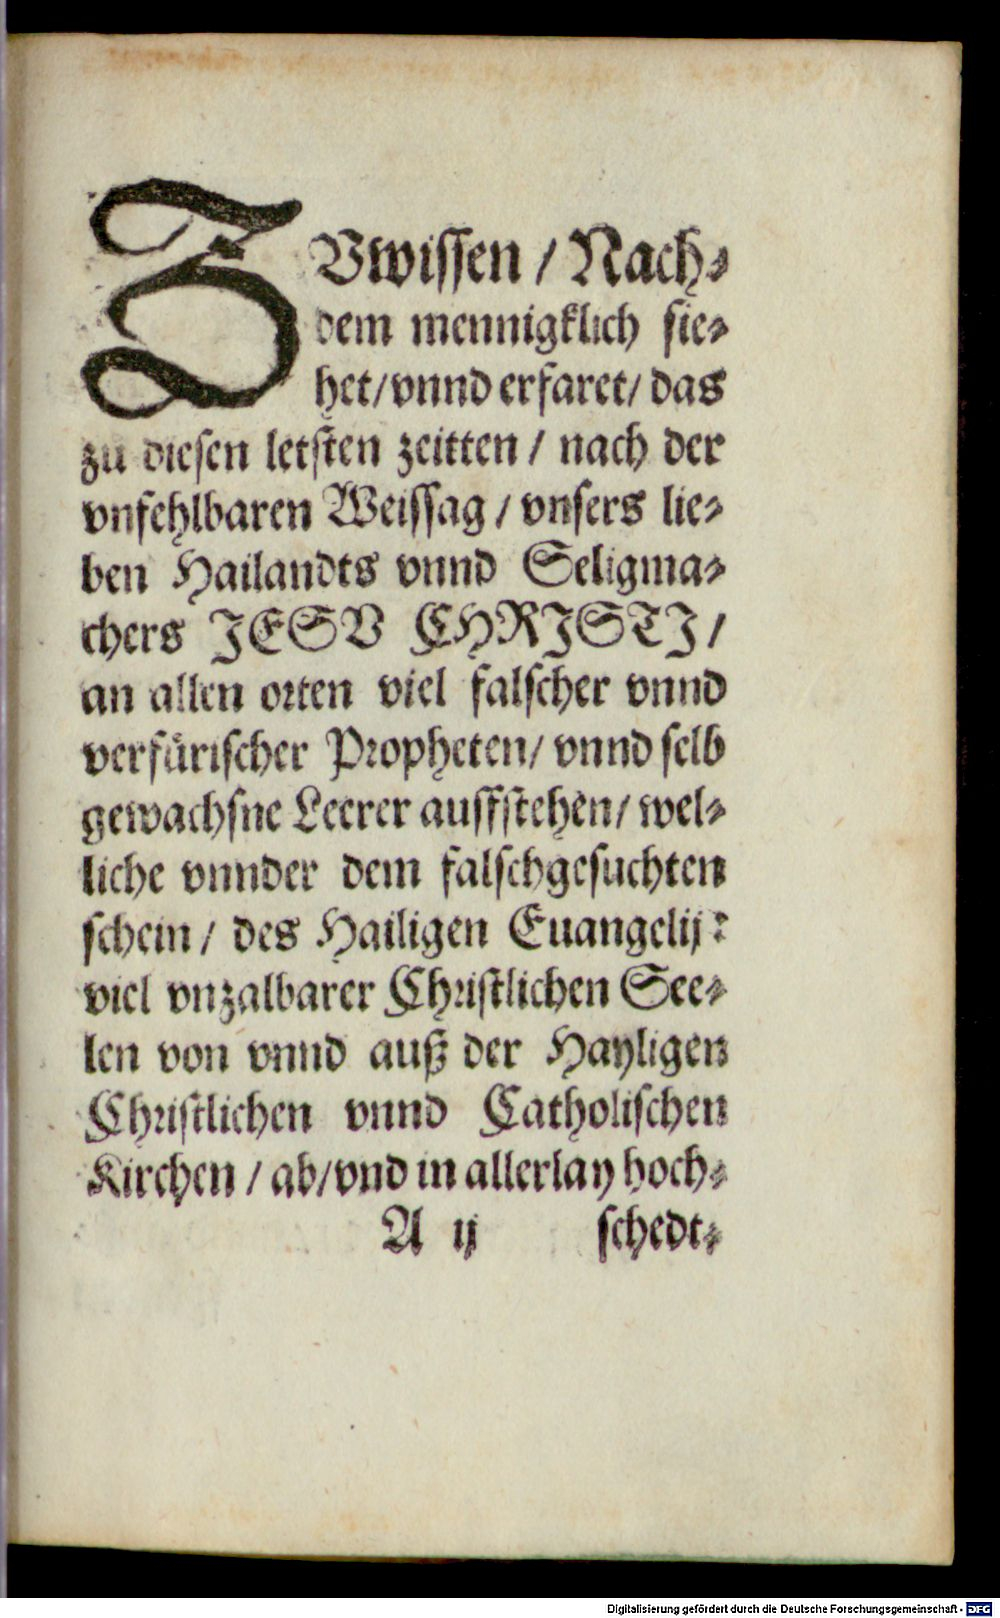 ZVwissen / Nach⸗
dem mennigklich sie⸗
het/vnnd erfaret/ das
zu diesen letsten zeitten / nach der
vnfehlbaren Weissag / vnsers lie⸗
ben Hailandts vnnd Seligma⸗
chers JESV CHRISTJ /
an allen orten viel falscher vnnd
verfürischer Propheten/ vnnd selb
gewachsne Leerer auffstehen/ wel⸗
liche vnnder dem falschgesuchten
schein / des Hailigen Euangelij:
viel vnzalbarer Christlichen See⸗
len von vnnd auß der Hayligen
Christlichen vnnd Catholischen
Kirchen / ab/vnd in allerlay hoch⸗
A ij schedt⸗
Digitalisierung gefördert durch die Deutsche Forschungsgemeinschaft - DFG